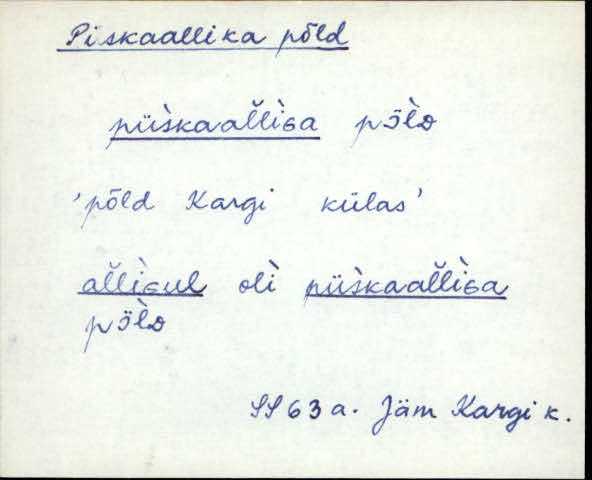 Piskaallika põld
piìskaal̆l̀iɢa pɜ̈̀lᴅ
'põld Kargi külas'
al̆l̀iɢul oĺì piìskaal̆l̀iɢa
pɜ̈̀lᴅ
SS 63 a. Jäm Kargi k.